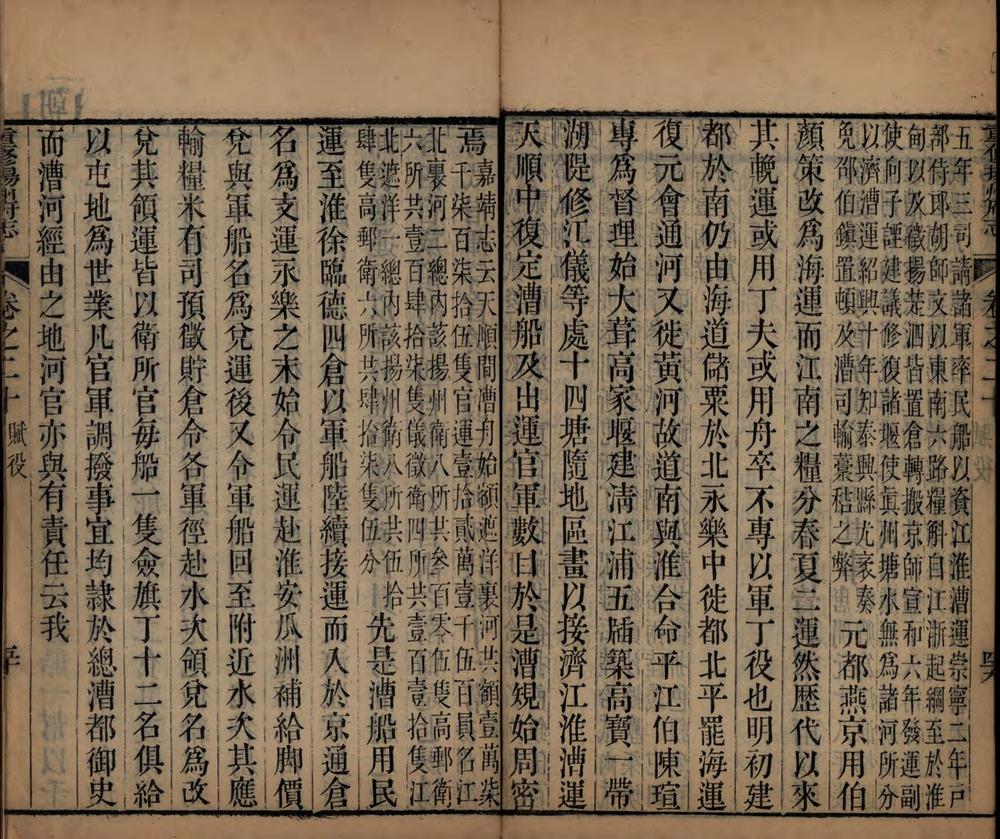 五年三司請諸軍率民船以資江淮漕運崇寧二年戶
部侍郎胡師文以東南六路糧斛自江浙起綱至於淮
甸以及徵揚楚泗皆置倉轉搬京師宣和六年發運副
使向子諲建議修復諸堰使眞州塘水無爲諸河所分
以濟漕運紹興十年知泰興縣尤袤奏
免邵伯鎭置頓及漕司輸藁秸之弊
元都燕京用伯
顏策改爲海運而江南之糧分春夏二運然歷代以來
其輓運或用丁夫或用舟卒不專以軍丁役也明初建
都於南仍由海道儲粟於北永樂中徙都北平罷海運
復元會通河又徙黃河故道南與淮合命平江伯陳瑄
專爲督理始大葺高家堰建淸江浦五牐築高寶一帶
湖隄修江儀等處十四塘隨地區畫以接濟江淮漕運
天順中復定漕船及出運官軍數曰於是漕規始周密
焉
嘉靖志云天順間漕舟始額遮洋裏河共額壹萬柒
千柒百柒拾伍隻官運壹拾貳萬壹千伍百員名江
北裏河二總內該揚州衛八所共叁百零伍隻高郵衛
六所共壹百肆拾柒隻儀徵衛四所共壹百壹拾隻江
北遮洋一總內該揚州衛八所共伍拾
肆隻高郵衛六所共肆拾柒隻伍分
先是漕船用民
運至淮徐臨德四倉以軍船陸續接運而入於京通倉
名爲支運永樂之末始令民運赴淮安瓜洲補給脚價
兌與軍船名爲兌運後又令軍船回至附近水次其應
輸糧米有司預徵貯倉令各軍徑赴水次領兌名爲改
兌其領運皆以衛所官每船一隻僉旗丁十二名俱給
以屯地爲世業凡官軍調撥事宜均隷於總漕都御史
而漕河經由之地河官亦與有責任云我
重修揚州府志
卷之二十
賦役